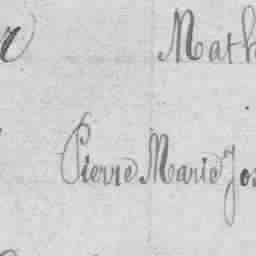 Math
Pierre Marie Jos